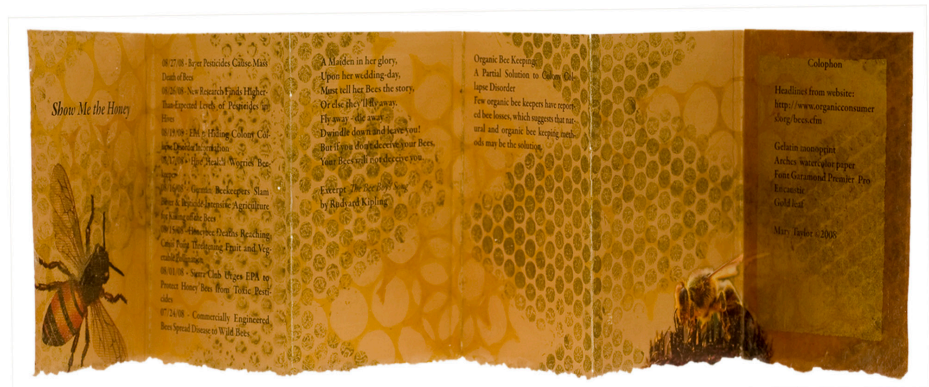 Show Me the Honey
08/27/08 - Bayer Pesticides Cause Mass
Death of Bees
08/26/08 - New Research Finds Higher-
Than-Expected Levels of Pesticides in
Hives
08/19/08 - EPA Hiding Colony Col-
lapse Disorder Information
Worries Bee-
Beekeepers Slam
Intensive Agriculture
Bees
Deaths Reaching
Threatening Fruit and Veg-
08/01/08 - Sierra Club Urges EPA to
Protect Honey Bees from Toxic Pesti-
cides
07/24/08 - Commercially Engineered
Bees Spread Disease to Wild Bees
A Maiden in her glory,
Upon her wedding-day,
Must tell her Bees the story,
Or else they'll fly away.
Fly away - die away
Dwindle down and leave you!
But if you don't deceive your Bees,
Your Bees will not deceive you.
Excerpt The Bee Boy's Song
by Rudyard Kipling
Organic Bee Keeping
A Partial Solution to Colony Col-
lapse Disorder
Few organic bee keepers have report-
ed bee losses, which suggests that nat-
ural and organic bee keeping meth-
ods may be the solution.
Colophon
Headlines from website:
http://www.organicconsumer
s.org/bees.cfm
Gelatin monoprint
Arches watercolor paper
Font Garamond Premier Pro
Encaustic
Gold leaf
Mary Taylor ©2008